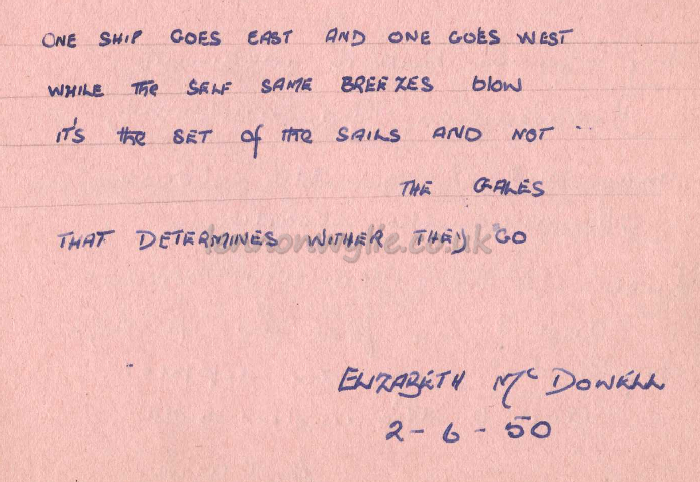 ONE SHIP GOES EAST AND ONE GOES WEST
WHILE THE SELF SAME BREEZES blow
IT'S the SET of THE SAILS AND NOT
THE GALES
THAT DETERMINES WITHER THEY GO
lennonwylie.co.uk
ELIZABETH Mc DOWELL
2-6-50